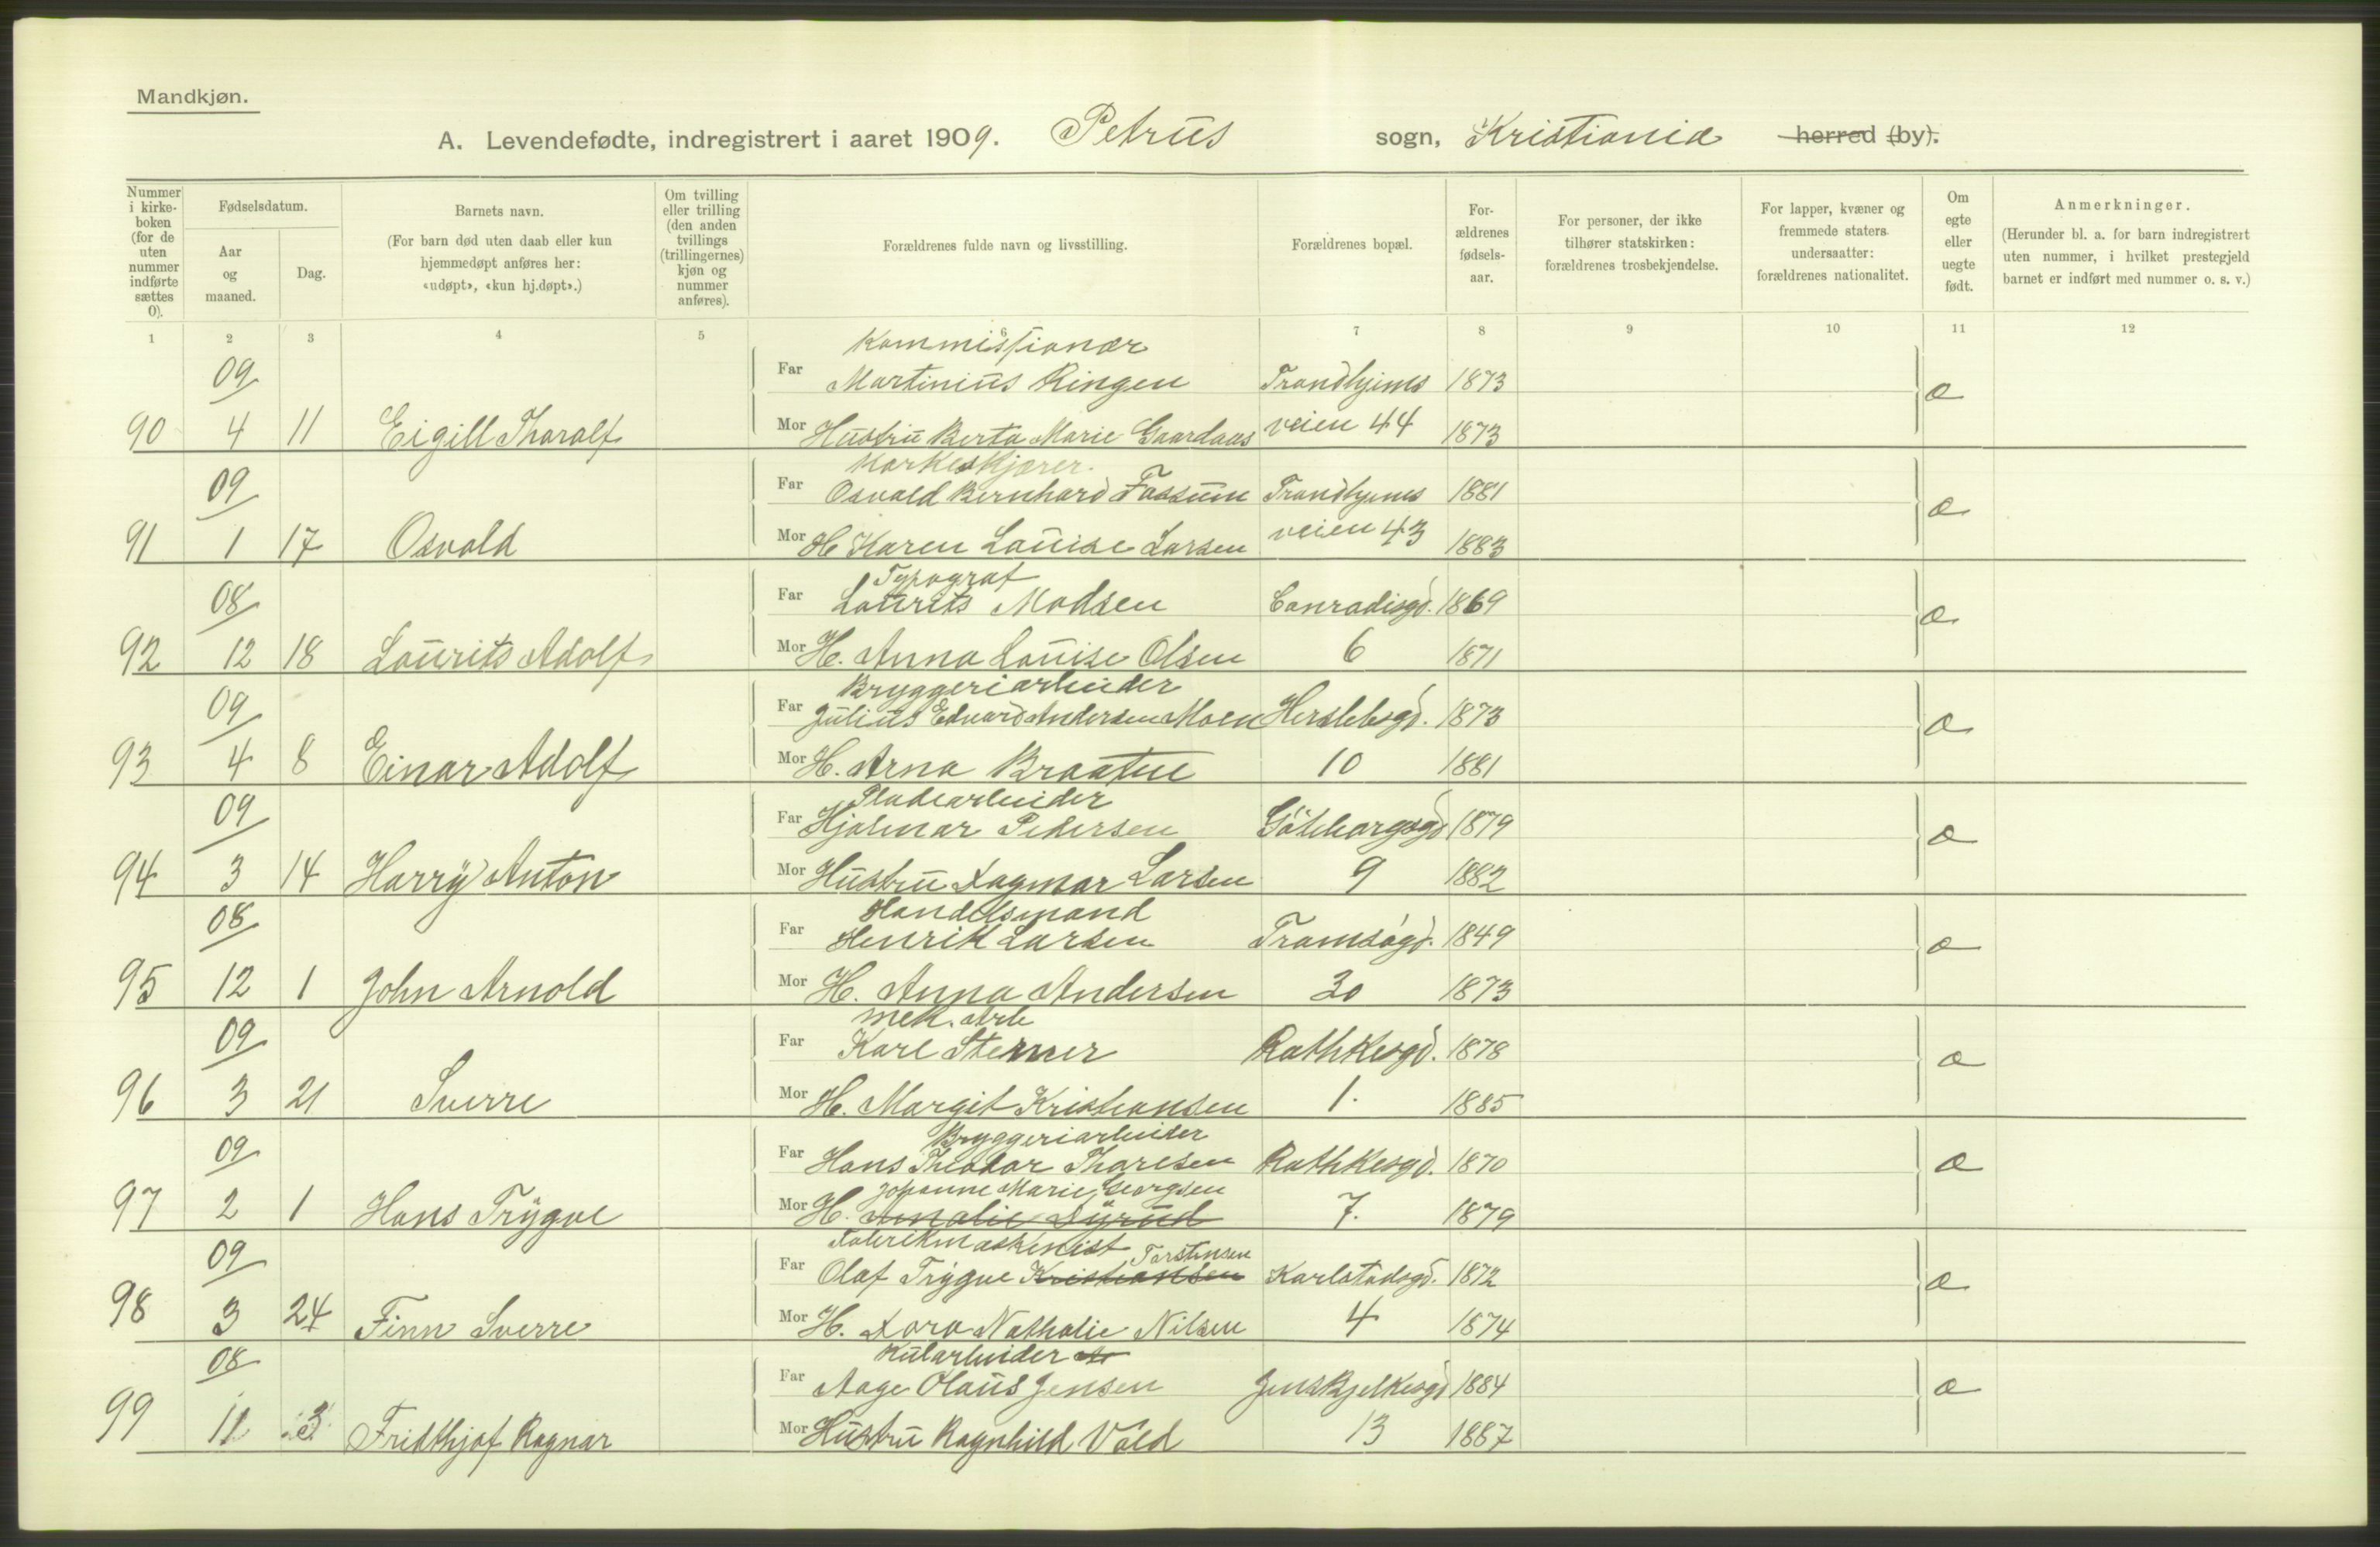 Mandkjøn.
A. Levendefødte, indregistrert i aaret 1909. Petrus sogn, Kristiania herred (by).
Nummer i kirke-boken (for de uten nummer indførte sættes 0).
Fødselsdatum.
Aar og maaned.
Dag.
Barnets navn.
(For barn død uten daab eller kun hjemmedøpt anføres her: «udøpt», «kun hj.døpt».)
Om tvilling eller trilling (den anden tvillings (trillingernes) kjøn og nummer anføres).
Forældrenes fulde navn og livsstilling.
Forældrenes bopæl.
For-ældrenes fødsels-aar.
For personer, der ikke tilhører statskirken: forældrenes trosbekjendelse.
For lapper, kvæner og fremmede staters undersaatter: forældrenes nationalitet.
Om egte eller uegte født.
Anmerkninger.
(Herunder bl. a. for barn indregistrert uten nummer, i hvilket prestegjeld barnet er indført med nummer o. s. v.)
1 2 3 4 5 6 7 8 9 10 11 12
Kommissionær
09 Far Martinius Ringen Trondhjems 1873
90 4 11 Eigill Thoralf Mor Hustru Berta Marie Gaardaas veien 44 1873 æ
09 Far Osvald Bernhard Fossum Trondhjems 1881
91 1 17 Osvald Mor H Karen Louise Larsen veien 43 1883 æ
Typograf
08 Far Laurits Madsen Conradisgd. 1869
92 12 18 Laurits Adolf Mor H. Anna Louise Olsen 6 1871 æ
Bryggeriarbeider
09 Far Julius Edvard Andersen Moen Herslebsgd. 1873
93 4 8 Einar Adolf Mor H. Arna Braaten 10 1881 æ
Pladearbeider
09 Far Hjalmar Pedersen Göteborgsgd 1879
94 3 14 Harry Anton Mor Hustru Dagmar Larsen 9 1882 æ
Handelsmand
08 Far Henrik Larsen Tromsøgd. 1849
95 12 1 John Arnold Mor H. Anna Andersen 30 1873 æ
Mek. arb
09 Far Karl Sterner Rathkesgd. 1878
96 3 21 Sverre Mor H. Margit Kristiansen 1. 1885 æ
Bryggeriarbeider
09 Far Hans Theodor Thoresen Rathkesgd. 1870
Johanne Marie Georgsen
97 2 1 Hans Trygve Mor H. Amalie Dyrud 7. 1879 æ
Fabrikmaskinist Torstensen
09 Far Olaf Trygve Kristiansen Karlstadsgd. 1872
98 3 24 Finn Sverre Mor H. Dora Nathalie Nilsen 4 1874 æ
Kularbeider
08 Far Aage Olaus Jensen Jens Bjelkesgd 1884
99 11 3 Fridthjof Ragnar Mor Hustru Ragnhild Vold 13 1887 æ